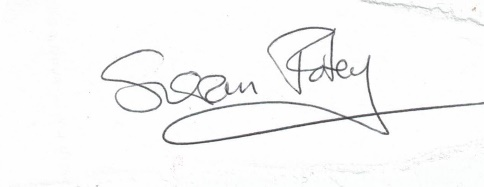 Susan Foley